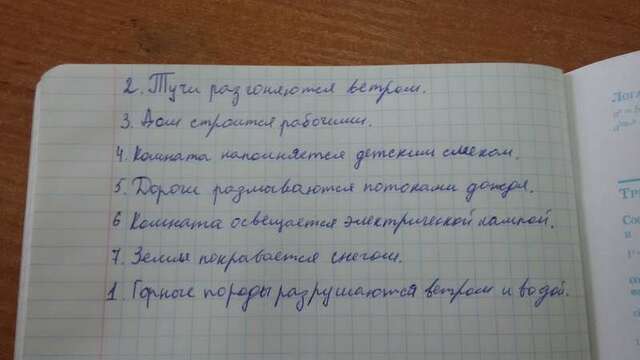 2. Тучи разгоняются ветром.
3. Дом строится рабочими.
4. Комната наполняется детским смехом.
5. Дороги размываются потоками дождя.
6 Комната освещается электрической лампой.
7. Земля покравается снегом.
1. Горные породы разрушаются ветром и водой.